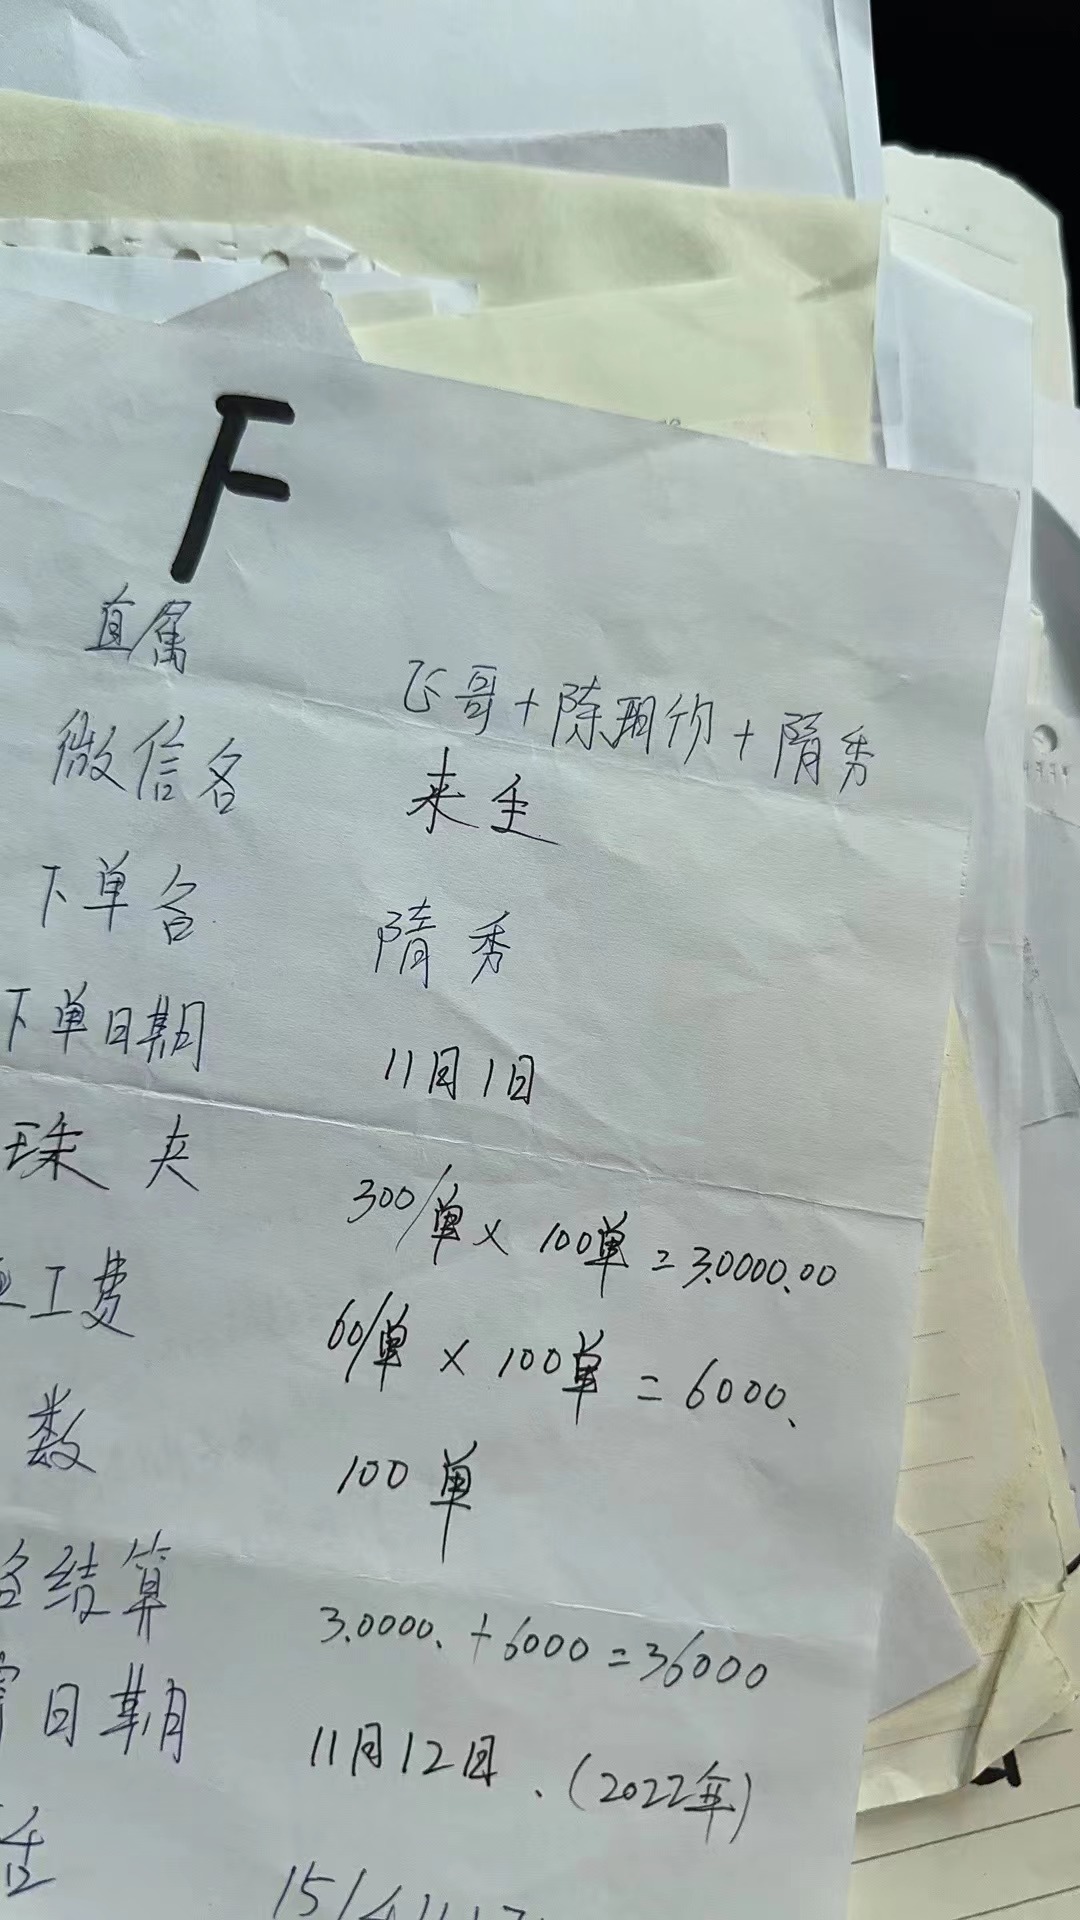 F
直属 飞哥+陈珊珍+隋秀
微信名 来生
下单名 隋秀
下单日期 11月1日
珠夹 300/单×100单=3.0000.00
工费 60/单×100单=6000、
数 100单
名结算 3.0000.+6000=36000
日期 11月12日.(2022年)
话